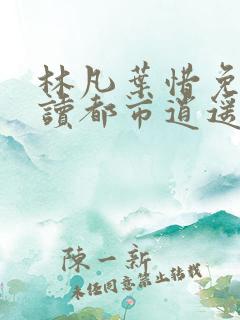 林凡葉惜免
讀都市逍遥
陳一新
未经同意禁止转载